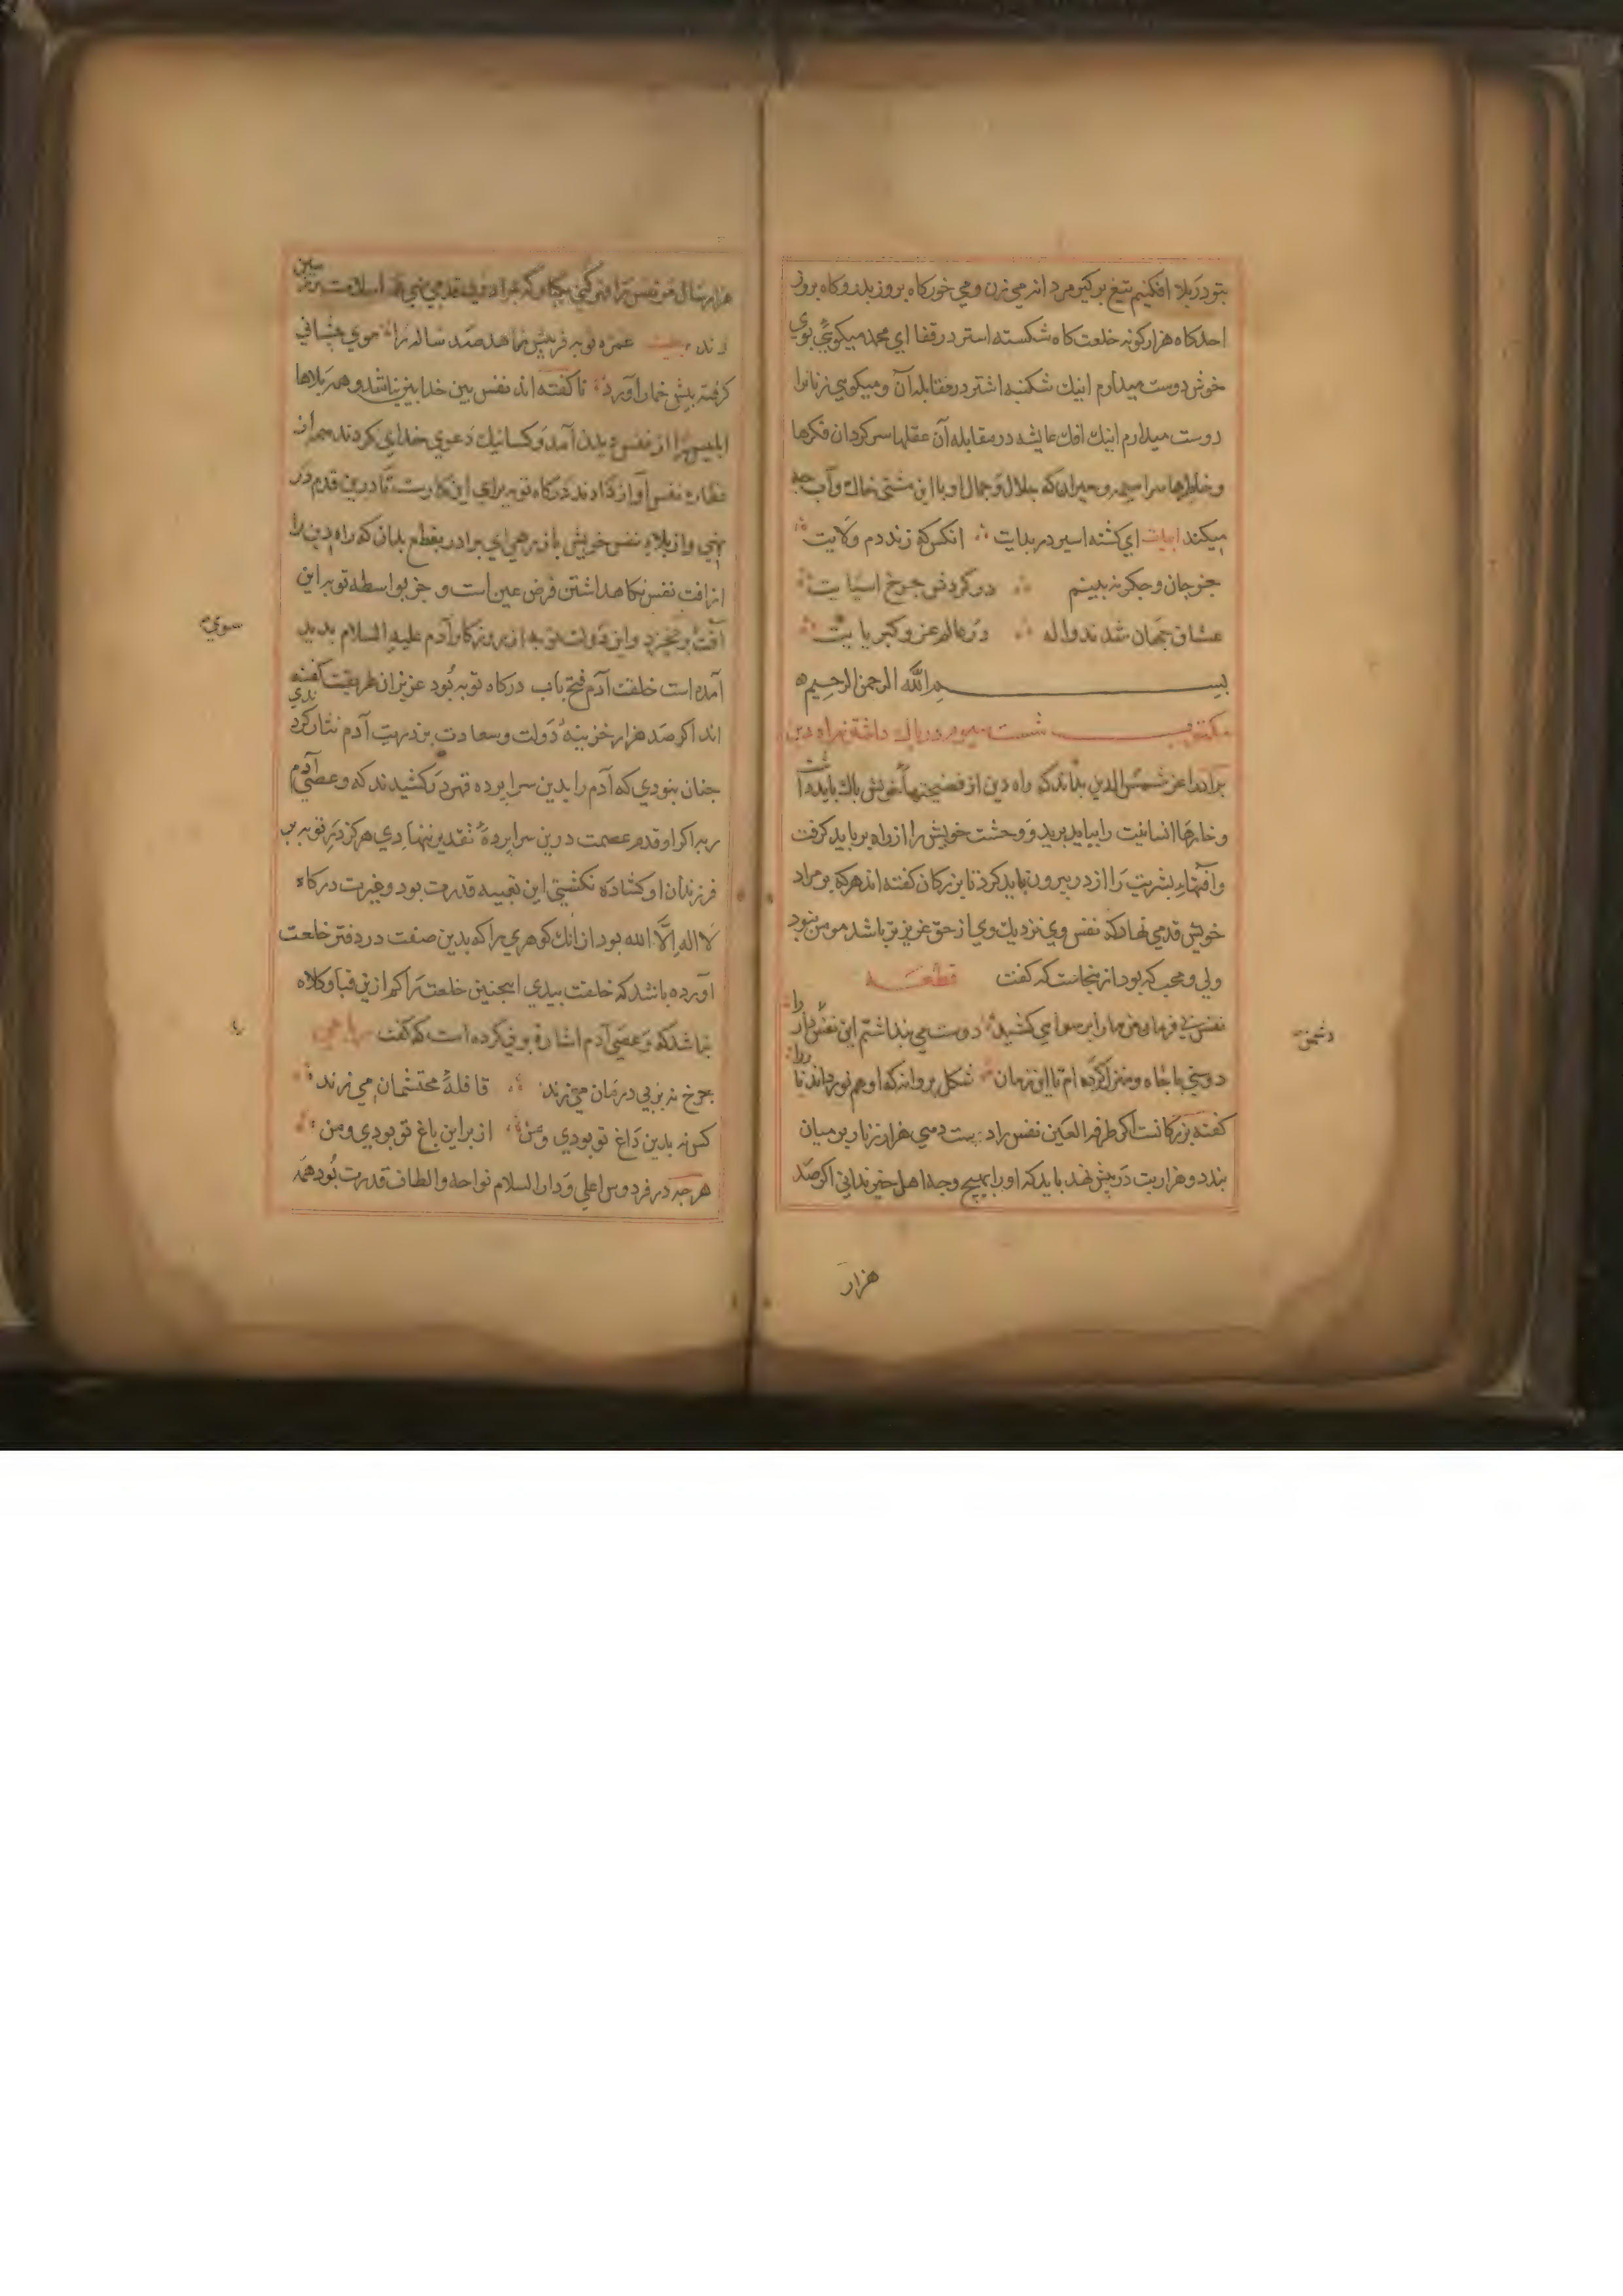 بتو در بلا افکنیم تیغ برکیر مردانه می زن و می خور کاه بروز بدر و کاه بروز
احد کاه هزار کونه خلعت کاه شکسته استر در قفا ای محمد میکوئی بوی
خوش دوست میدارم اینک شکنبه اشتر در مقابله آن و میکویی زنانرا
دوست میدارم اینک افک عایشه در مقابله آن عقلها سرکردان فکرها
و خاطرها سراسیمه و حیران که جلال و جمال او با این مشتی خاک و آب چه
میکند ابیات ای کشته اسیر در بلایت انکس که زند دم ولایت
جز جان و جکر نه بدینم در کردش جرخ اسیایت
عشاق جهان شدند واله در عالم عز و کبریایت
بسم الله الرحمن الرحیم
مکتوب شست سیوم در پاک داشتن راه دین
برادر اعز شمس الدین بداند که راه دین از فضیحتهاء خویش پاک باید داشت
و خارهاء انسانیت را بباید برید و وحشت خویش را از راه بر باید کرفت
و آفتهاء بشریت را از در بیرون باید کرد تا بزرکان کفته اند هر که بر مراد
خویش قدمی نهاد که نفس وی نزدیک وی از حق عزیزتر باشد مومن نبود
ولی و محب که بود از ینجاست که کفت قطعه
نفس بی فرمان من مارا برسوایی کشید دوست می بنداشتم این نفس دشمن دار را
دوستی با جاه و منزل کرده ام تا این زمان شکل بروانه که او هم نور داند نار را
کفته بزرکانست اکر طرفة العین نفس را دست دهی هزار زنار بر میان
بندد و هزار بت در پیش نهد باید که او را بهیچ وجه اهل خیر ندانی اکر صد
هزار
هزار سال مر نفس را قهر کنی
زند بیت عمره توبه فریبش زاهد صد ساله را موی پیشانی
کرفته پیش خمار آورد تا کفته اند نفس بین خدا بین نباشد و همه بلاها
ابلیس را از نفس پدید آمد و کسانیک دعوی خدای کردند هم از
نفس آواز دادند درکاه توبه برای این کارست تا درین قدم در
نهی و از بلاء نفس خویش باز رهی ای برادر بقطع بدان که راه دین را
از افت نفس نکاهداشتن فرض عین است و جز بواسطه توبه این
آفت بر نخیزد و این دولت توبه از روزکار آدم علیه السلام پدید
سوی
آمده است خلقت آدم فتح باب درکاه توبه بود عزیزان طریقت کفته
اند اکر صد هزار خزینه دولت و سعادت بر ذریت آدم نثار کردندی
چنان نبودی که آدم را بدین سرا پرده قهر در کشیدند که و عصی آدم
ربه اکر او قدم عصمت درین سرا پرده تقدیر ننهادی هرکز در توبه بر
فرزندان او کشاده نکشتی این تعبیه قدرت بود و غیرت درکاه
لا اله الا الله بود از انک کوهری را که بدین صفت در دفتر خلعت
آورده باشد که خلقت بیدی اینچنین خلعت را کم ازین قبا و کلاه
نباشد که و عصی آدم اشارة بر وی کرده است که کفت رباعی
جرخ نه بر بی درمان می زند قافلهٔ محتشمان می زند
کس نه بدین داغ تو بودی و من از بر این باغ تو بودی و من
هرچه در فردوس اعلی و دار السلام نواخه و الطاف قدرت بود همه